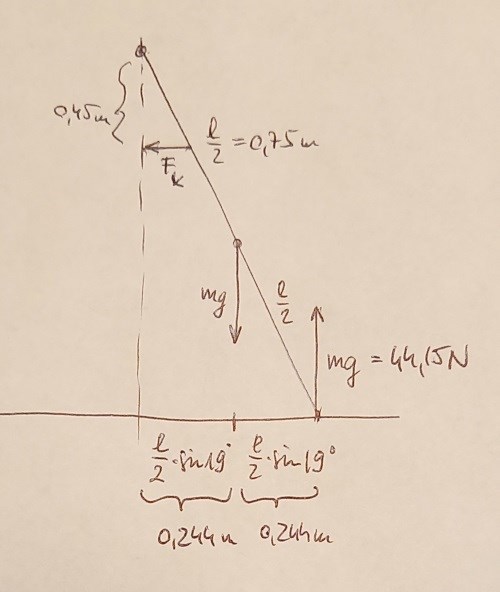 0,45m
l/2 = 0,75m
Fk
mg
l/2
mg = 44,15N
l/2 · sin19° l/2 · sin19°
0,244m 0,244m